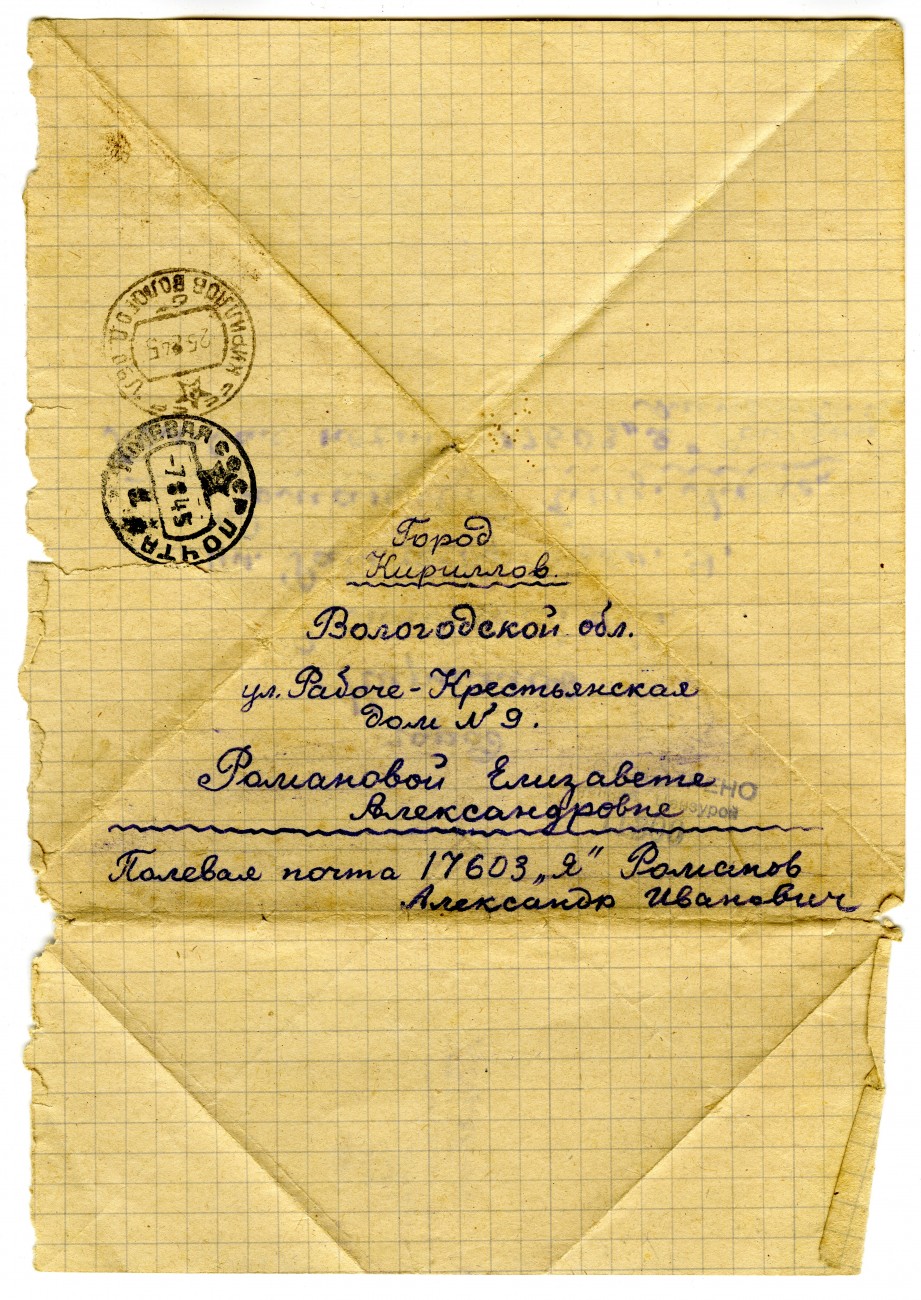 КИРИЛЛОВ ВОЛОГОД. ОБЛ.
25 8 45
ПОЛЕВАЯ ПОЧТА
СССР
-7 8 45
Город
Кириллов
Вологодской обл.
ул. Рабоче-Крестьянская
дом № 9.
Романовой Елизавете
Александровне
Полевая почта 17603 „Я" Романов
Александр Иванович